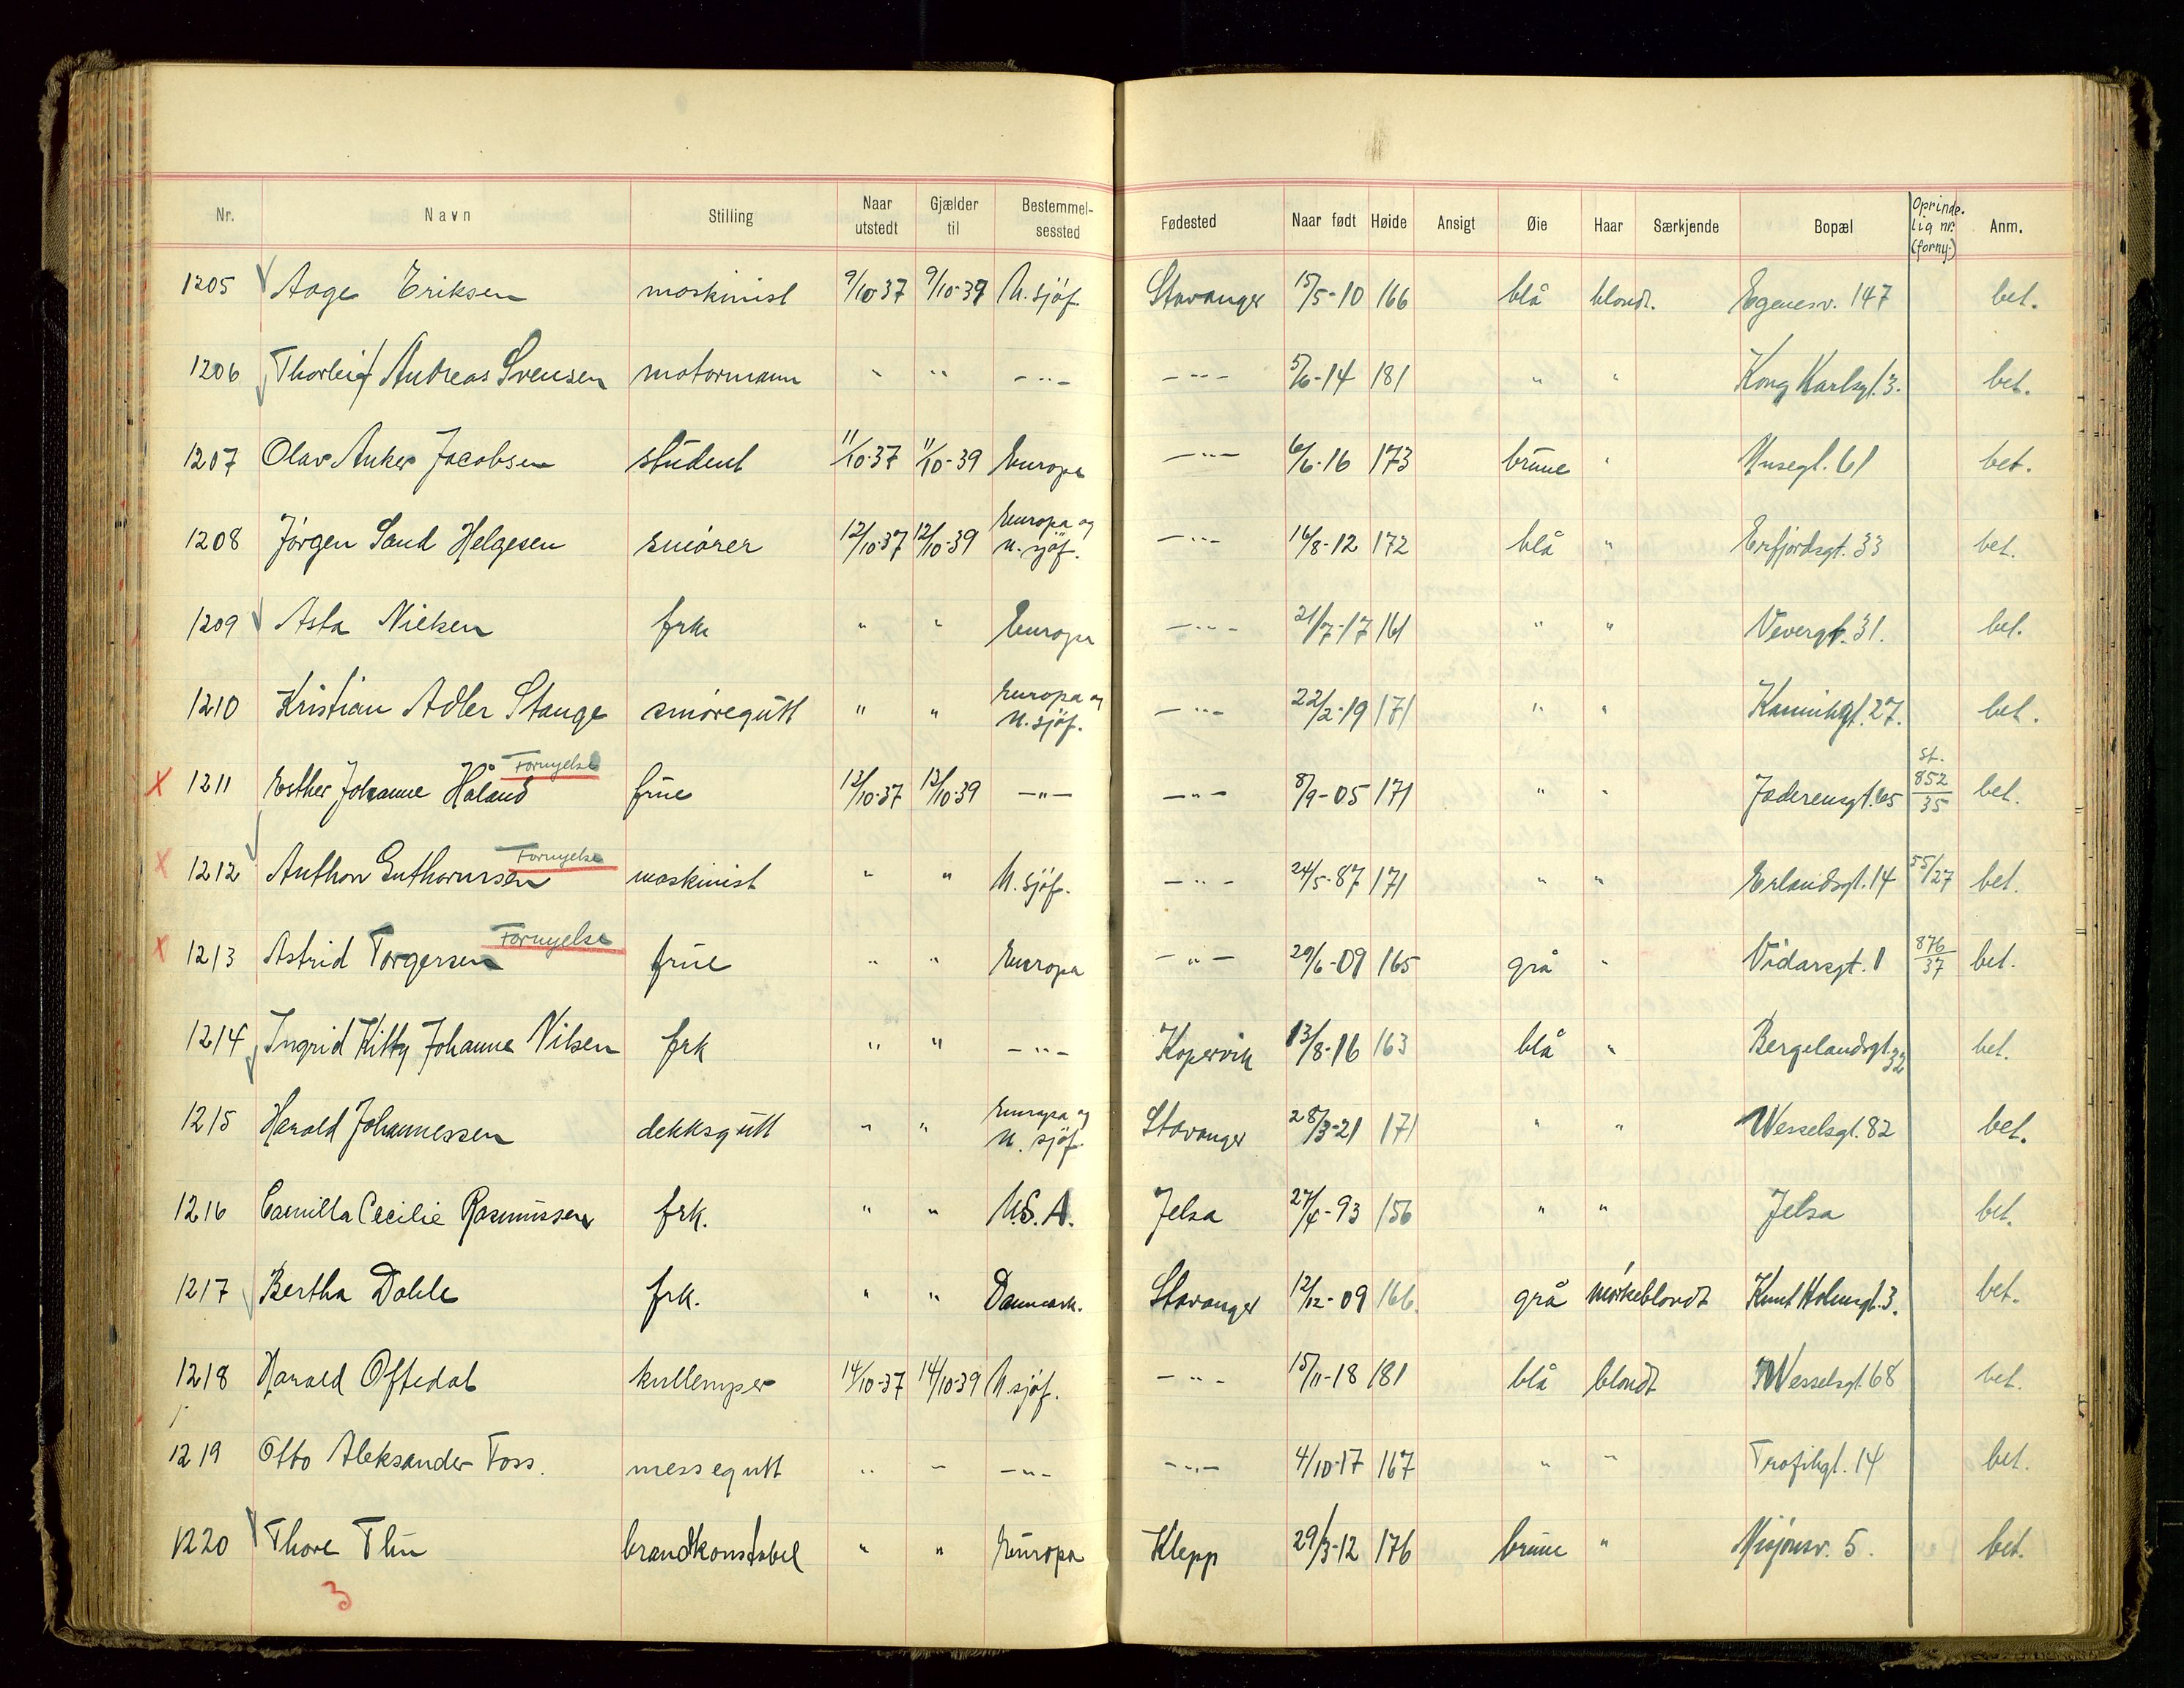 Nr. Navn Stilling Naar utstedt Gjælder til Bestemmelsessted Fødested Naar født Høide Ansigt Øie Haar Særkjende Bopæl Oprindelig nr. (forny.) Anm.
1205 Aage Eriksen maskinist 9/10-37 9/10-39 U. sjöf. Stavanger 15/5-10 166 blå blondt. Egenesv. 147 bet.
1206 Thorleif Andreas Svensen motormann " " -"- -"- 5/6-14 181 " " Kong Karlsgt. 3. bet.
1207 Olav Anker Jacobsen student 11/10-37 11/10-39 Europa -"- 6/6-16 173 brune " bet.
1208 Jörgen Sand Helgesen smörer 12/10-37 12/10-39 Europa og u. sjöf. -"- 16/8-12 172 blå " Erfjordsgt. 33 bet.
1209 Asta Nielsen frk " " Europa -"- 21/7-17 161 " " Vevergt. 31. bet.
1210 Kristian Adler Stange smöregutt " " Europa og u. sjöf. -"- 22/2-19 171 " " 27. bet.
X 1211 Esther Johanne Håland Fornyelse frue 13/10-37 13/10-39 -"- -"- 8/9-05 171 " " Jaderensgt. 65 st. 852/35 bet.
X 1212 Anthon Guthormsen Fornyelse maskinist " " U. sjöf. -"- 24/5-87 171 " " Erlandsgt. 14 55/27 bet.
X 1213 Astrid Torgersen Fornyelse frue " " Europa -"- 29/6-09 165 grå " Vidarsgt. 1 876/37 bet.
1214 Ingrid Kitty Johanne Nilsen frk " " -"- Kopervik 13/8-16 163 blå " Bergelandsgt. 32 bet.
1215 Harald Johannessen dekksgutt " " Europa og u. sjöf. Stavanger 28/3-21 171 " " Wesselsgt. 82 bet.
1216 Camilla Cecilie Rasmussen frk. " " U.S.A. Jelsa 27/4-93 156 " " Jelsa bet.
1217 Bertha Dahle frk. " " Danmark. Stavanger 12/12-09 166. grå mörkeblondt Knut Holmsgt. 3. bet.
1218 Harald Oftedal kullemper 14/10-37 14/10-39 U. sjöf. -"- 15/11-18 181 blå blondt Wesselsgt. 68 bet.
1219 Otto Aleksander Foss. messegutt " " -"- -"- 4/10-17 167 " " 14 bet.
1220 Thore Thu brandkonstabel " " Europa Klepp 29/3-12 176 brune " Misjonsv. 5. bet.
3